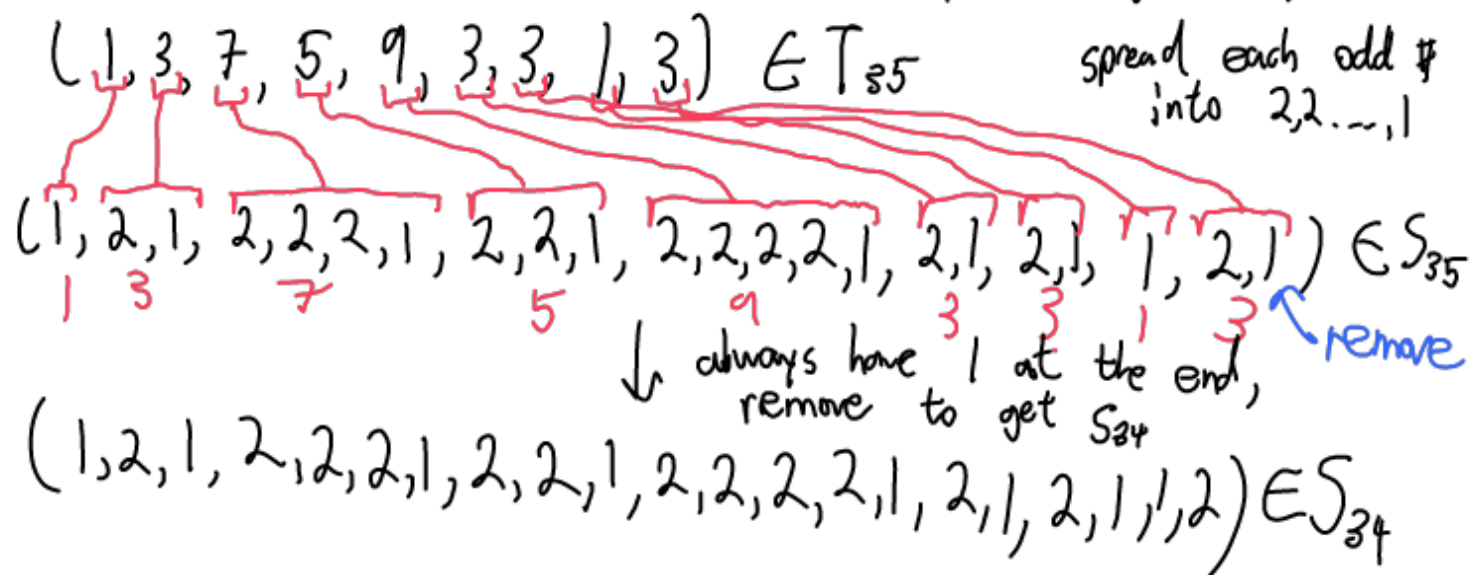 (1, 3, 7, 5, 9, 3, 3, 1, 3) ∈ T₃₅
spread each odd #
into 2,2...,1
(1, 2, 1, 2, 2, 2, 1, 2, 2, 1, 2, 2, 2, 2, 1, 2, 1, 2, 1, 1, 2, 1) ∈ S₃₅
1 3 7 5 9 3 3 1 3
remove
↓ always have 1 at the end,
remove to get S₃₄
(1, 2, 1, 2, 2, 2, 1, 2, 2, 1, 2, 2, 2, 2, 1, 2, 1, 2, 1, 1, 2) ∈ S₃₄